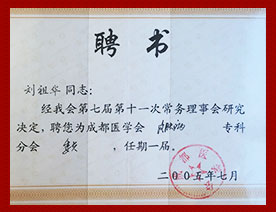 聘书
刘祖华同志：
经我会第七届第十一次常务理事会研究
决定，聘您为成都医学会 专科
分会 ，任期一届。
二00五年七月